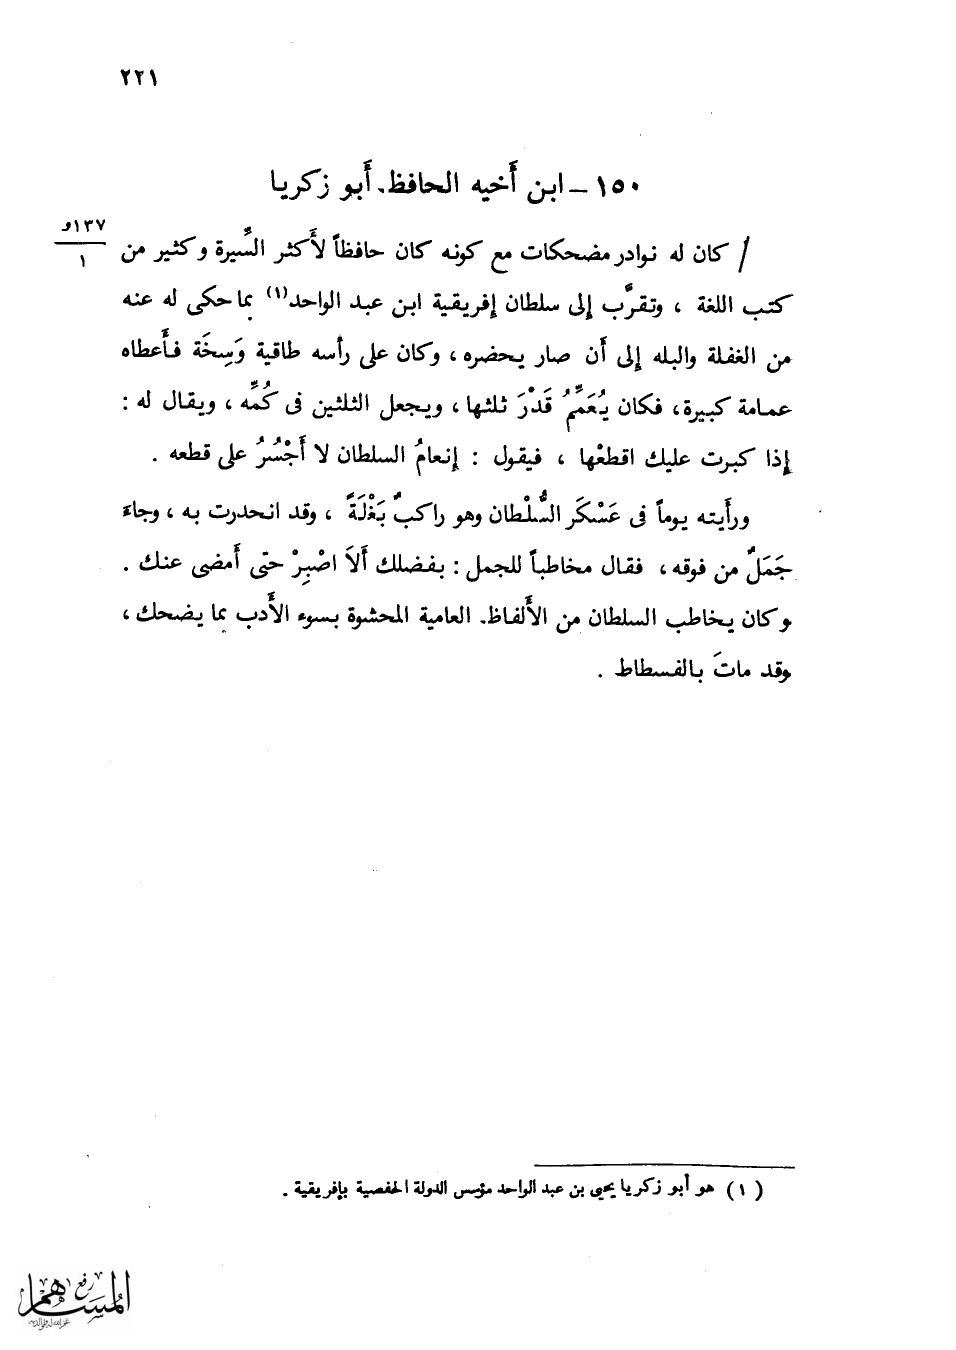 ٢٢١
١٥٠ – ابن أَخيه الحافظ. أَبو زكريا
١٣٧و
١
/ كان له نوادر مضحكات مع كونه كان حافظاً لأَكثر السِّيرة وكثير من
كتب اللغة ، وتقرَّب إلى سلطان إفريقية ابن عبد الواحد(١) بما حكى له عنه
من الغفلة والبله إلى أَن صار يحضره ، وكان على رأسه طاقية وَسِخَة فأَعطاه
عمامة كبيرة ، فكان يُعَمِّمُ قَدْرَ ثلثها ، ويجعل الثلثين فى كُمِّه ، ويقال له :
إذا كبرت عليك اقطعْها ، فيقول : إنعامُ السلطان لا أَجْسُرُ على قطعه .
ورأَيته يوماً فى عَسْكَر السُّلْطان وهو راكبٌ بَغْلَةً ، وقد انحدرت به ، وجاءَ
جَمَلٌ من فوقه ، فقال مخاطباً للجمل : بفضلك أَلاَ اصْبِرْ حتى أَمضى عنك .
وكان يخاطب السلطان من الأَلفاظ. العامية المحشوة بسوء الأَدب بما يضحك ،
وقد ماتَ بالفسطاط .
(١) هو أبو زكريا يحيى بن عبد الواحد مؤسس الدولة الحفصية بإفريقية .
رفع
المساهم